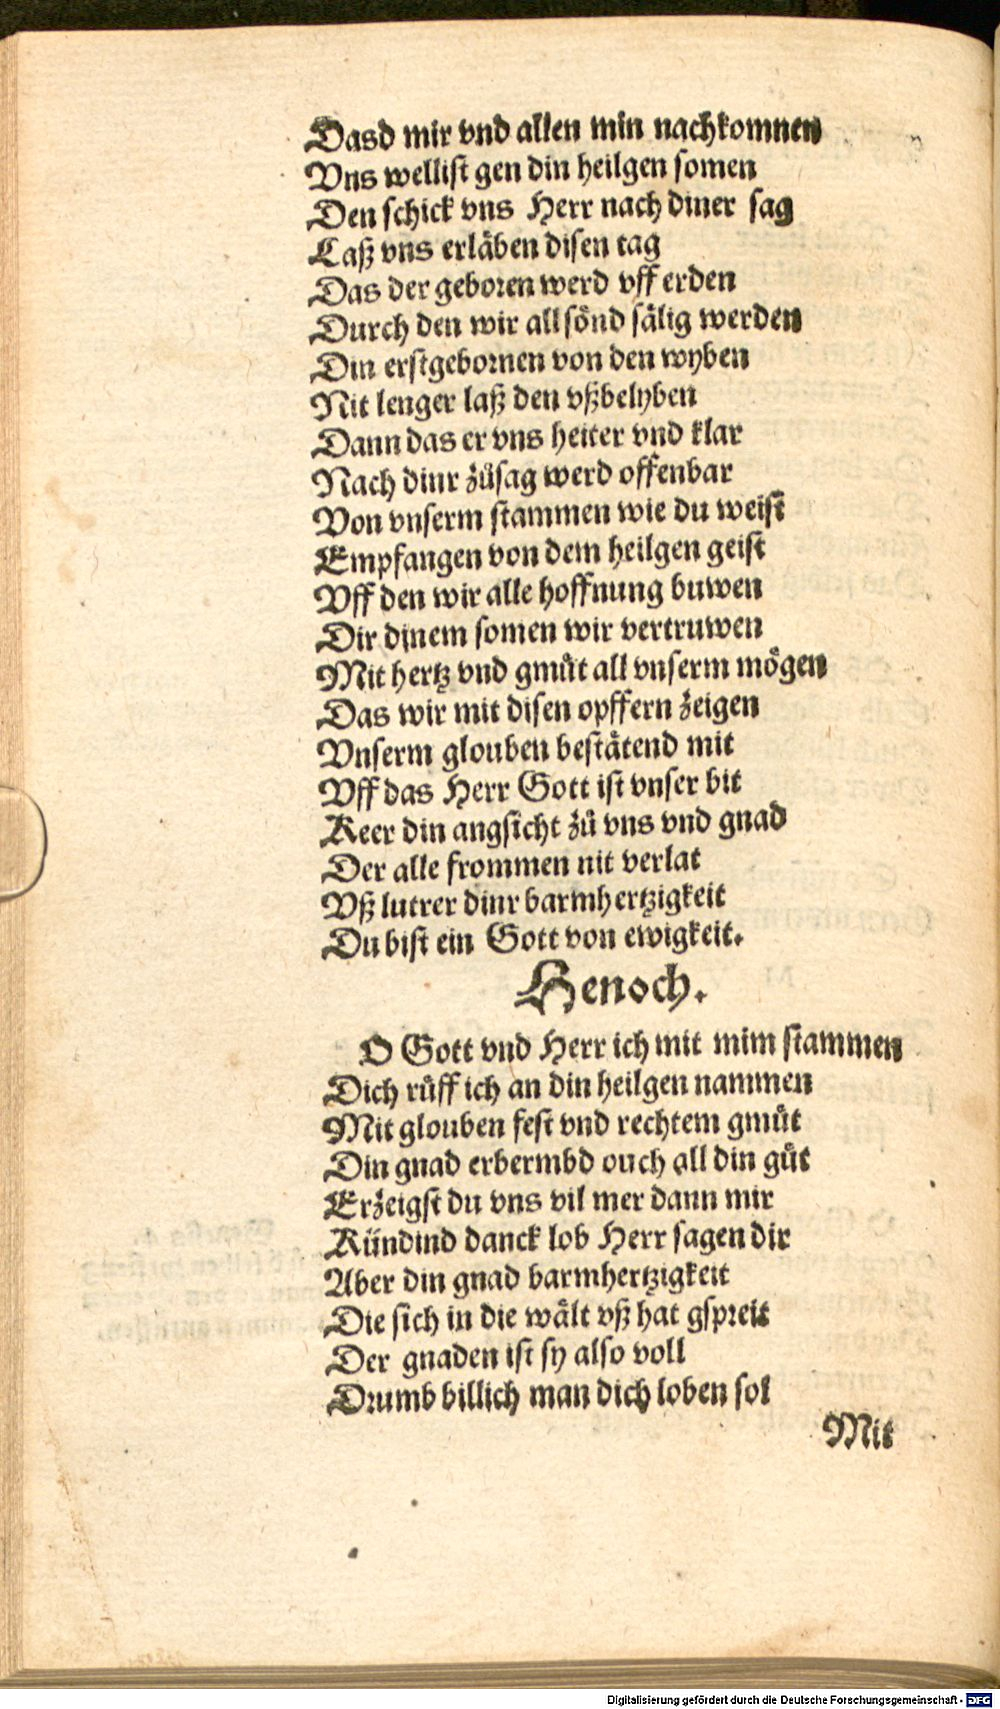 Dasd mir vnd allen min nachkomnen
Vns wellist gen din heilgen somen
Den schick vns Herr nach diner sag
Laß vns erläben disen tag
Das der geboren werd vff erden
Durch den wir all sönd sälig werden
Din erstgebornen von den wyben
Nit lenger laß den vßbelyben
Dann das er vns heiter vnd klar
Nach dinr zůsag werd offenbar
Von vnserm stammen wie du weist
Empfangen von dem heilgen geist
Vff den wir alle hoffnung buwen
Dir dinem somen wir vertruwen
Mit hertz vnd gmůt all vnserm mögen
Das wir mit disen opffern zeigen
Vnserm glouben bestätend mit
Vff das Herr Gott ist vnser bit
Keer din angsicht zů vns vnd gnad
Der alle frommen nit verlat
Vß lutrer dinr barmhertzigkeit
Du bist ein Gott von ewigkeit.
Henoch.
O Gott vnd Herr ich mit mim stammen
Dich růff ich an din heilgen nammen
Mit glouben fest vnd rechtem gmůt
Din gnad erbermbd ouch all din gůt
Erzeigst du vns vil mer dann mir
Kündind danck lob Herr sagen dir
Aber din gnad barmhertzigkeit
Die sich in die wält vß hat gspreit
Der gnaden ist sy also voll
Drumb billich man dich loben sol
Mit
Digitalisierung gefördert durch die Deutsche Forschungsgemeinschaft - DFG